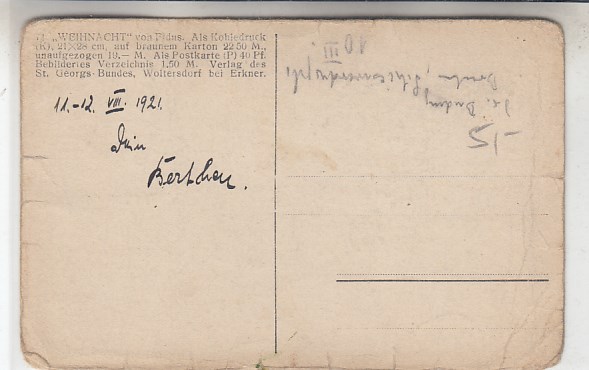 „WEIHNACHT" von Fidus. Als Kohledruck
(K), 21×28 cm, auf braunem Karton 22 50 M.,
unaufgezogen 18.— M. Als Postkarte (P) 40 Pf.
Bebildertes Verzeichnis 1,50 M. Verlag des
St. Georgs-Bundes, Woltersdorf bei Erkner.
11.-12. VIII. 1921.
Dein
Bertchen.
10
III
-15